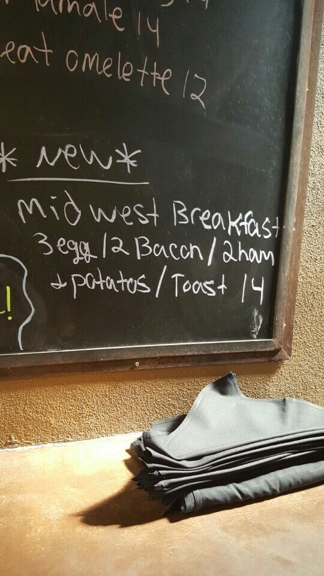 amale 14
eat omelette 12
* New *
Midwest Breakfast
3 egg / 2 Bacon / 2 ham
& potatos / Toast 14
!